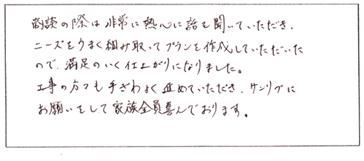 商談の際は非常に熱心に話を聞いていただき、
ニーズをうまく組み取ってプランを作成していただいた
ので、満足のいく仕上がりになりました。
工事の方も手ぎわよく進めていただき、サンリブに
お願いをして家族全員喜んでおります。